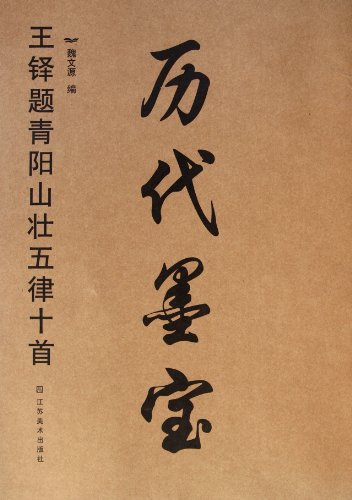 历代墨宝
魏文源 编
王铎题青阳山壮五律十首
江苏美术出版社